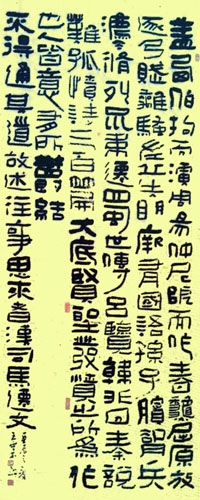 蓋西伯拘而演周易仲尼厄而作春秋屈原放
逐乃賦離騷左丘失明厥有國語孫子臏脚兵
法脩列不韋遷蜀世傳呂覽韓非囚秦說
難孤憤詩三百篇大底賢聖發憤之所爲作
也人皆意有所鬱結
不得通其道故述往事思來者漢司馬遷文